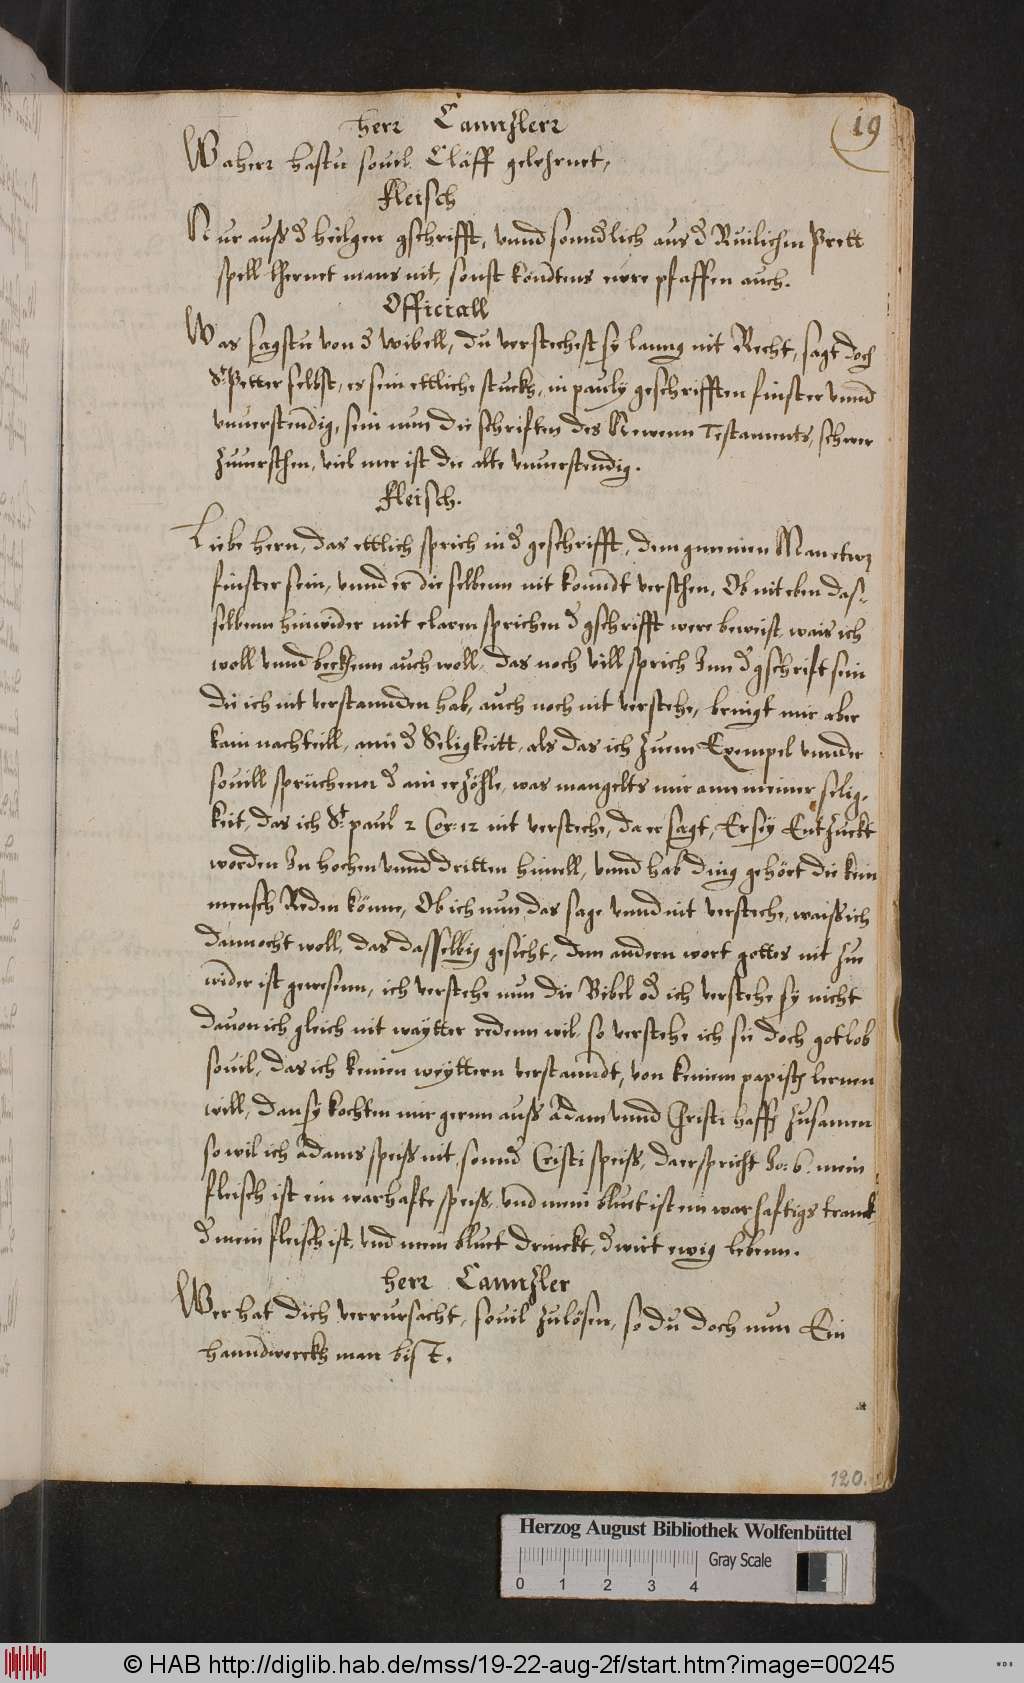 herr Cannzlerr
19
Waherr hastu souil Cläff gelehrnet,
fleisch
Nur auß d heilgen gschrifft, vnnd sonndlich aus d
spell lhernet mans nit, sonst köndtens ewre pfaffen auch.
Officiall
Was sagstu von d bibell, du verstehest sy lanng nit Recht, sagt doch
St Petter selbst, es sein ettliche stuckh, in pauly geschrifften finster vnnd
vnuerstendig, sein nun die schrifften des Newenn Testaments, schwer
zuuersthen, viel mer ist die alte vnuerstendig.
fleisch.
Liebe hern, das ettlich sprich in d geschrifft, dem gmeinen Man etwz
finster sein, vnnd er die selbenn nit konndt versthen, Ob nit eben das-
selbenn hinwider mit claren sprichen d gschrifft were beweist, wais ich
woll vnnd bekhenn auch woll, das noch vill sprich Inn d gschrift sein
die ich nit verstannden hab, auch noch nit verstehe, bringt mir aber
kain nachteill, ann d Seligkeitt, als das ich zuem Exempel vnnder
souill sprüchenn d ain erzöhle, was mangelts mir ann meiner selig,
keit, das ich St paul 2 Cor: 12 nit verstehe, da er sagt, Er sey Entzuckt
worden In hochen vnnd dritten himell, vnnd hab ding gehört die kein
mensch Reden könne, Ob ich nun das sage vnnd nit verstehe, waiß ich
dannocht woll, das dasselbig gesicht, dem andern wort gottes nit zue
wider ist gewesenn, ich verstehe nun die Bibel od ich verstehe sy nicht
dauon ich gleich nit waytter redenn wil, so verstehe ich sie doch gotlob
souil, das ich keinen weyttern verstanndt, von keinem papisten lernen
will, dan sy kochten mir gernn auß Adam vnnd Christi haffen zusamen
so wil ich Adams speiß nit, sonnd Cristi speiß, da er spricht Jo: 6. mein
fleisch ist ein warhafte speiß, vnd mein bluet ist ein warhaftigs tranck
d mein fleisch ist, vnd mein bluet drinckt, d wirt ewig lebenn.
herr Cannzler
Wer hat dich verrursacht, souil zulösen, so du doch nun Ein
hanndwerckh man bist.
120.
Herzog August Bibliothek Wolfenbüttel
Gray Scale
0 1 2 3 4
© HAB http://diglib.hab.de/mss/19-22-aug-2f/start.htm?image=00245